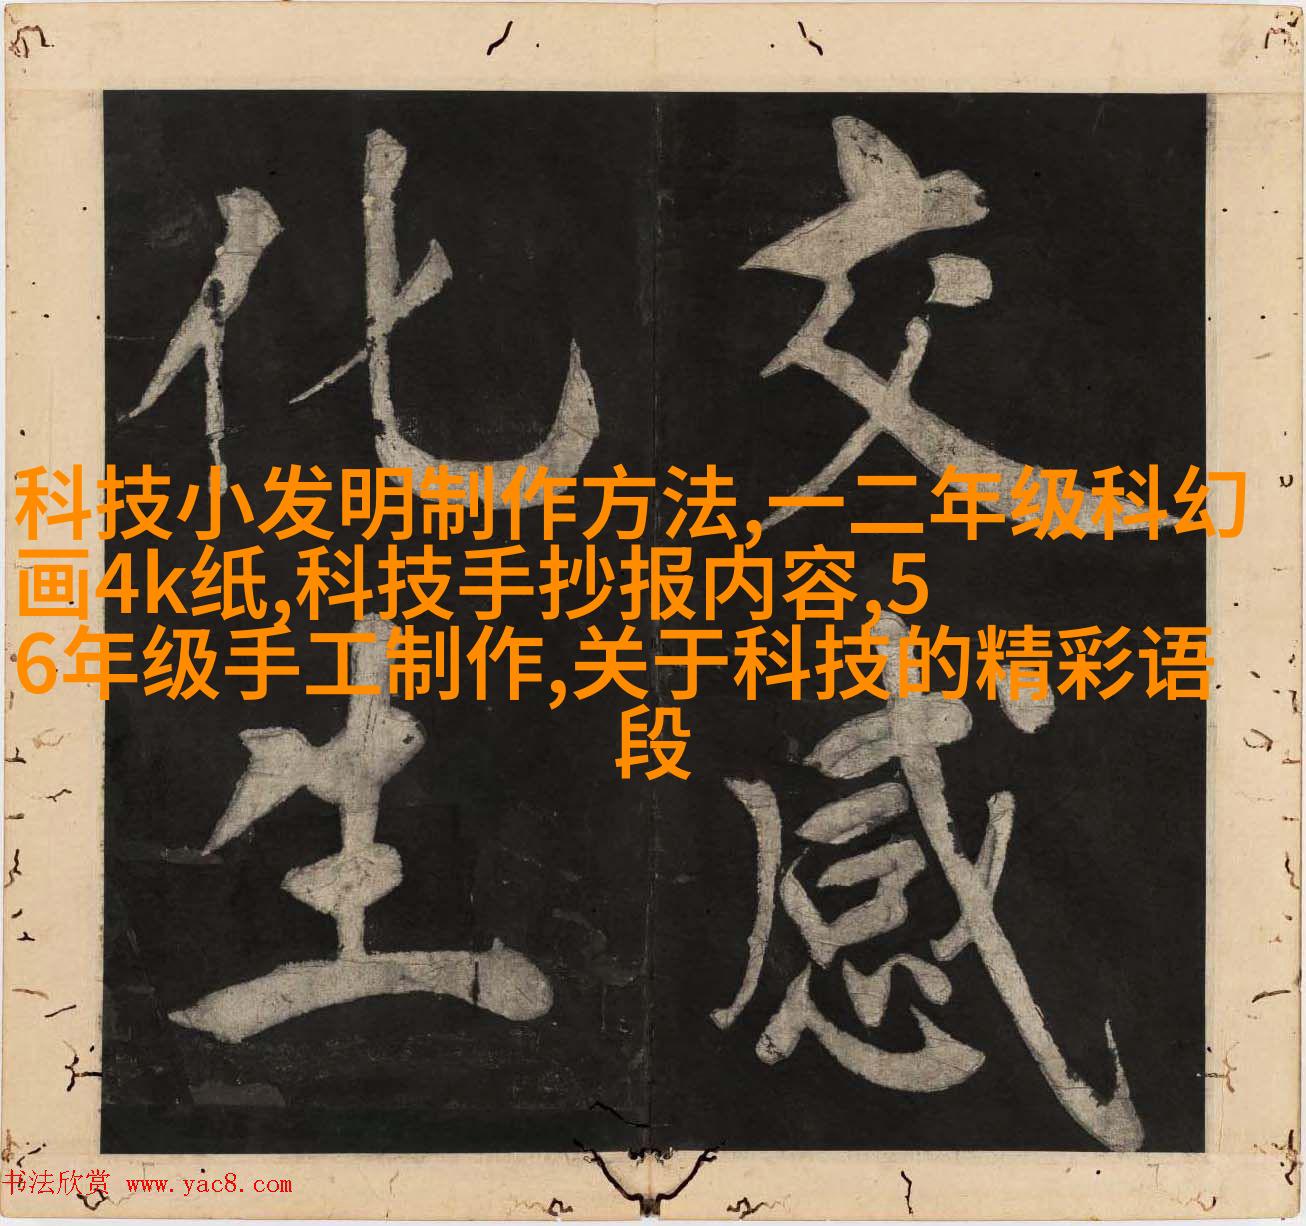 交感
化生
科技小发明制作方法,一二年级科幻
画4k纸,科技手抄报内容,5
6年级手工制作,关于科技的精彩语
段
书法欣赏 www.yac8.com